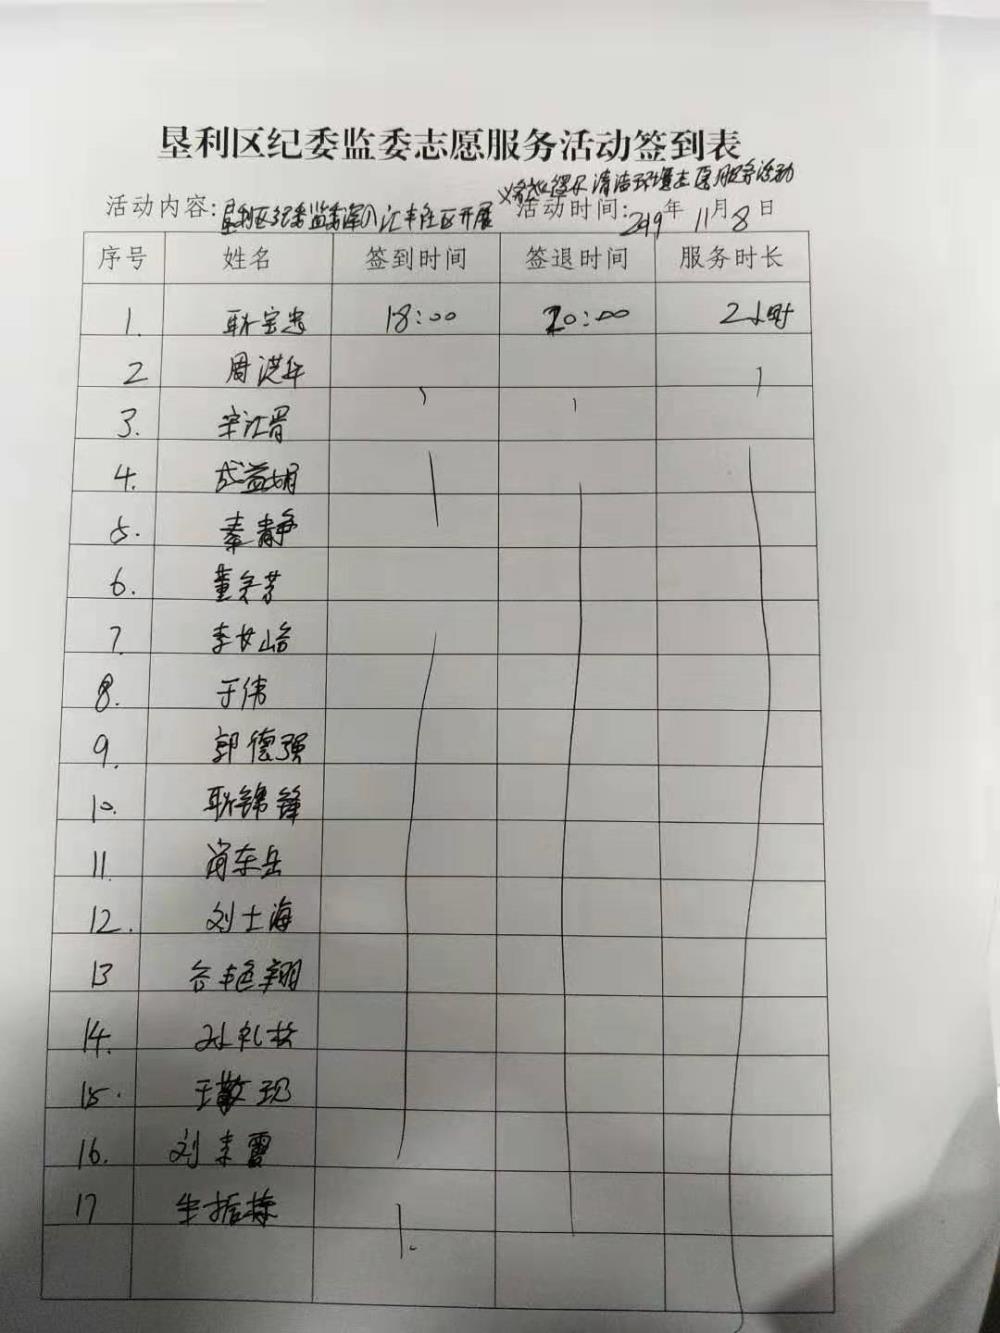 垦利区纪委监委志愿服务活动签到表
清洁环境志愿服务活动
活动内容: 垦利区纪委监委深入汇丰社区开展 活动时间: 2019年 11月8日
序号 姓名 签到时间 签退时间 服务时长
1. 耿宝忠 18:00 20:00 2小时
2 周洪年
3. 宋江胥
4. 成益娟
5. 秦静
6. 董芳
7. 李
8. 于伟
9. 郭德强
10. 耿锦锋
11. 尚东岳
12. 刘士海
13 谷艳翔
14. 孙礼
15. 王敬现
16. 刘素雷
17 生振栋